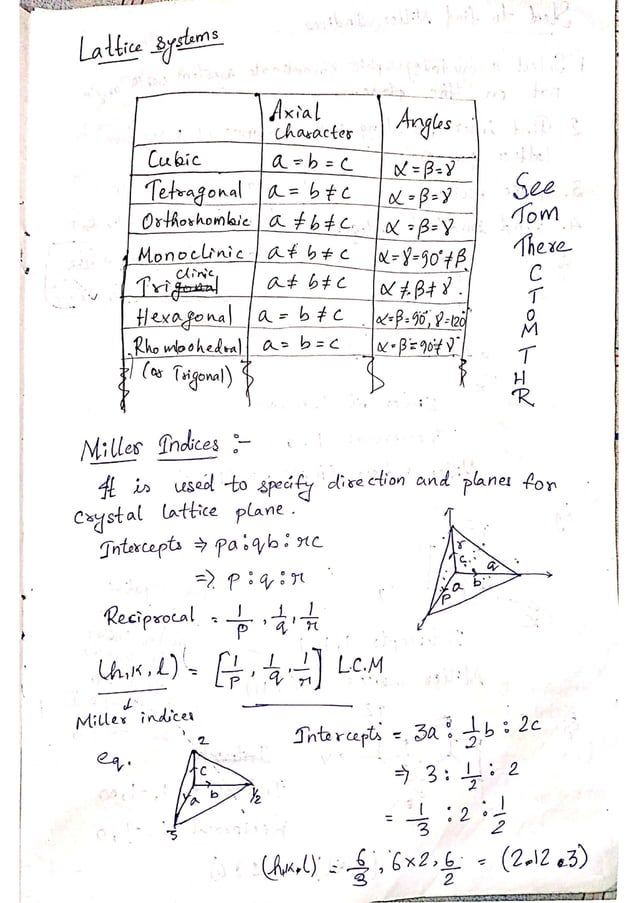 Lattice systems
Axial character | Angles
Cubic | a = b = c | α = β = γ
Tetragonal | a = b ≠ c | α = β = γ
Orthorhombic | a ≠ b ≠ c | α = β = γ
Monoclinic | a ≠ b ≠ c | α = γ = 90° ≠ β
Triclinic | a ≠ b ≠ c | α ≠ β ≠ γ.
Hexagonal | a = b ≠ c | α = β = 90°, γ = 120°
Rhombohedral | a = b = c | α = β = 90° ≠ γ
(or Trigonal)
See
Tom
There
C
T
O
M
T
H
R
Miller Indices :-
It is used to specify direction and planes for
crystal lattice plane.
Intercepts ⇒ pa : qb : rc
⇒ p : q : r
Reciprocal = 1/p, 1/q, 1/r
(h, k, l) = [1/p, 1/q, 1/r] L.C.M
r
c
q
a b
p
Miller indices
eg.
2
c
a b
1/2
3
Intercepts = 3a : 1/2 b : 2c
⇒ 3 : 1/2 : 2
= 1/3 : 2 : 1/2
(h,k,l) = 6/3, 6×2, 6/2 = (2,12,3)